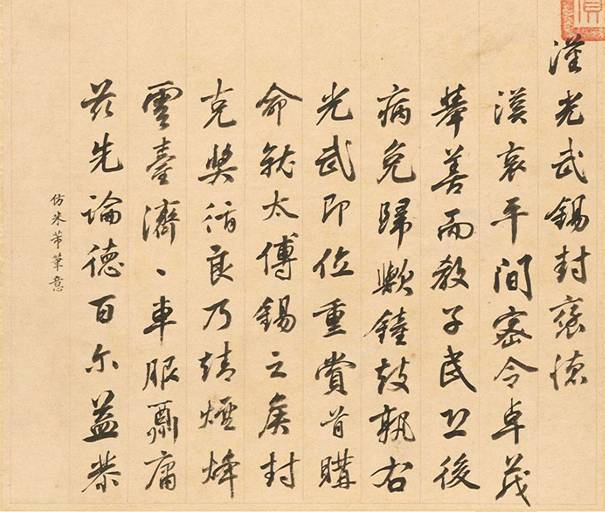 漢光武錫封褒德
漢哀平間密令卓茂
舉善而教子民後
病免歸歟鐘鼓孰右
光武即位重賞首購
命就太傅錫之侯封
克獎循良乃靖煙烽
雲臺濟、車服酬庸
茲先論德百尔益恭
仿米芾筆意